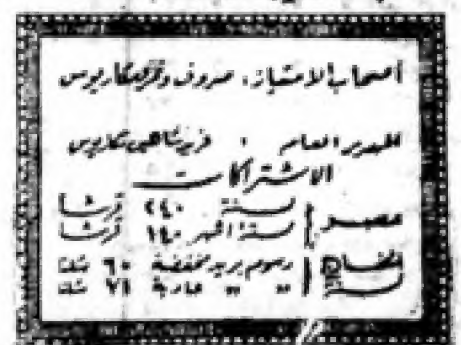 أصحاب الامتياز: صروف ونمر ومكاريوس
المدير العام : فريد شاهين مكاريوس
الاشتراكات
مصر | لسنة ٢٤٠ قرشاً
لستة أشهر ١٤٠ قرشاً
الخارج | رسوم بريد مخفضة ٦٠ شلناً
لسنة | " " عادية ٧٦ شلناً